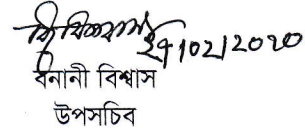 ২৭/০২/২০২০
বনানী বিশ্বাস
উপসচিব